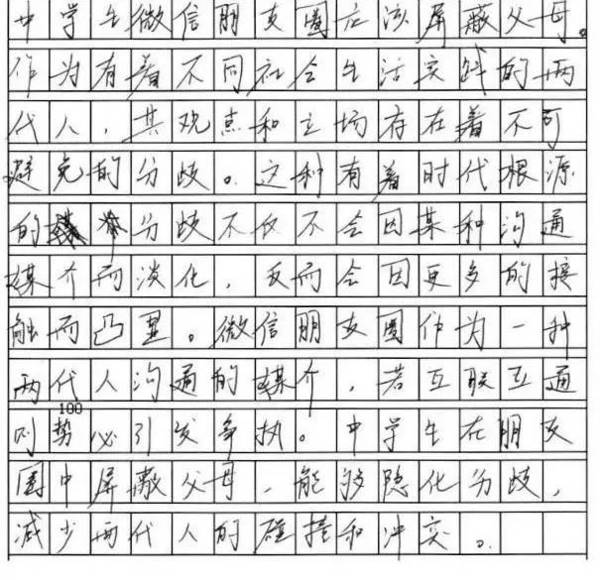 中学生微信朋友圈应该屏蔽父母。
作为有着不同社会生活实践的两
代人，其观点和立场存在着不可
避免的分歧。这种有着时代根源
的分歧不仅不会因某种沟通
媒介而淡化，反而会因更多的接
触而凸显。微信朋友圈作为一种
两代人沟通的媒介，若互联互通
100
则势必引发争执。中学生在朋友
圈中屏蔽父母，能够隐化分歧，
减少两代人的碰撞和冲突。